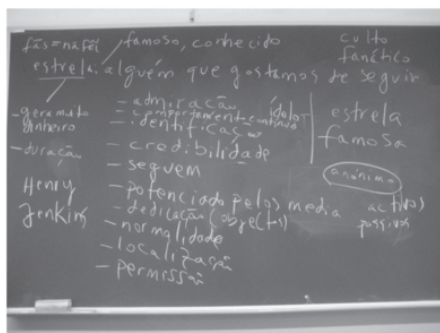 fãs = famoso, conhecido
estrela, alguém que gostamos de seguir
- gera muito dinheiro
- duração
Henry
Jenkins
- admiração
- comportamento contínuo
- identificação
- credibilidade
- seguem
- potenciado pelos media
- dedicação (objectos)
- normalidade
- localização
- permissão
ídolo
culto
fanático
estrela
famosa
anónimo
activos
passivos